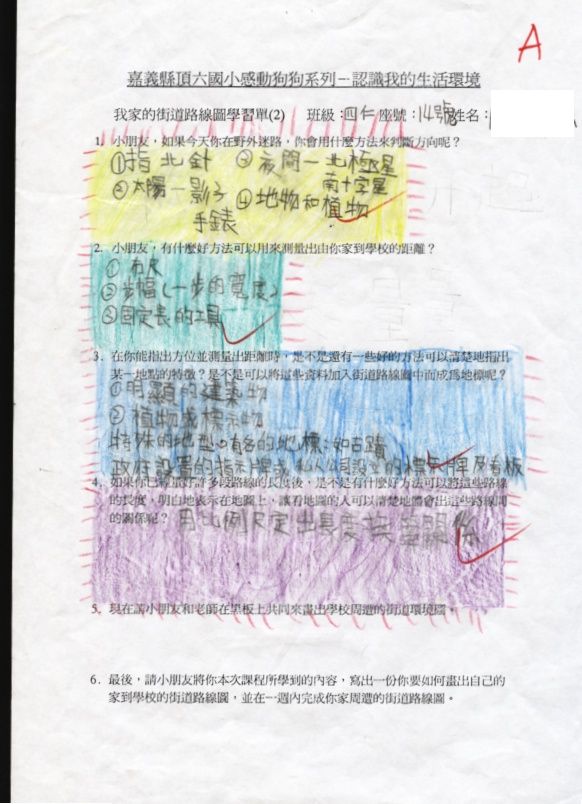 A
嘉義縣頂六國小感動狗狗系列－認識我的生活環境
我家的街道路線圖學習單(2) 班級：四仁 座號：14號 姓名：
1. 小朋友，如果今天你在野外迷路，你會用什麼方法來判斷方向呢？
①指北針 ②夜間－北極星
南十字星
③太陽－影子 ④地物和植物
手錶
2. 小朋友，有什麼好方法可以用來測量出由你家到學校的距離？
①布尺
②步幅(一步的寬度)
③固定長的工具
3. 在你能指出方位並測量出距離時，是不是還有一些好的方法可以清楚地指出
某一地點的特徵？是不是可以將這些資料加入街道路線圖中而成為地標呢？
①明顯的建築物
②植物或標示物
特殊的地型。有名的地標：如古蹟
政府設置的指示牌或私人公司設立的標示牌及看板
4. 如果你已測量好許多段路線的長度後，是不是有什麼好方法可以將這些路線
的長度，明白地表示在地圖上，讓看地圖的人可以清楚地體會出這些路線間
的關係呢？ 用比例尺定出長度 關係
5. 現在請小朋友和老師在黑板上共同來畫出學校周遭的街道環境圖。
6. 最後，請小朋友將你本次課程所學到的內容，寫出一份你要如何畫出自己的
家到學校的街道路線圖，並在一週內完成你家周遭的街道路線圖。